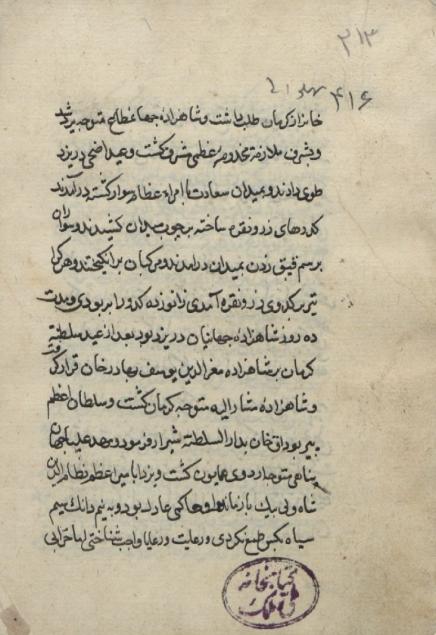 ۲۱۳
۴۱۶
خانرا از کرمان طلب داشت و شاهزاده جهان مطاع متوجه یزد شد
و بشرف ملازمة مخدومه عظمی مشرف گشت و عید اضحی در یزد
طوی دادند و بمیدان سعادت با امراء عظام سوار گشته در آمدند
کدوهای زر و نقره ساخته بر چوب میدان کشیدند و سواران
برسم قبق زدن بمیدان درامدند و مرکبان برانگیختند و هر کرا
تیر بر کدوی زر و نقره آمدی زانو زده کدو را بربودی و مدت
ده روز شاهزاده جهانیان در یزد بود بعد از عید سلطنة
کرمان بر شاهزاده معز الدین یوسف بهادر خان قرار گرفت
و شاهزاده مشار الیه متوجه کرمان گشت و سلطان اعظم
پیر بوداق خان بدار السلطنة شیراز فرمود و مهد علیا جهان
پناهی متوجه اردوی همایون گشت و یزد با میر اعظم نظام الدین
شاه ولی بیک باز ماند و او حاکمی عادل بود و به نیم دانک سیم
سیاه بکس طمع نکردی و رعایت رعایا واجب شناختی اما خرابی
کتابخانه
ملک